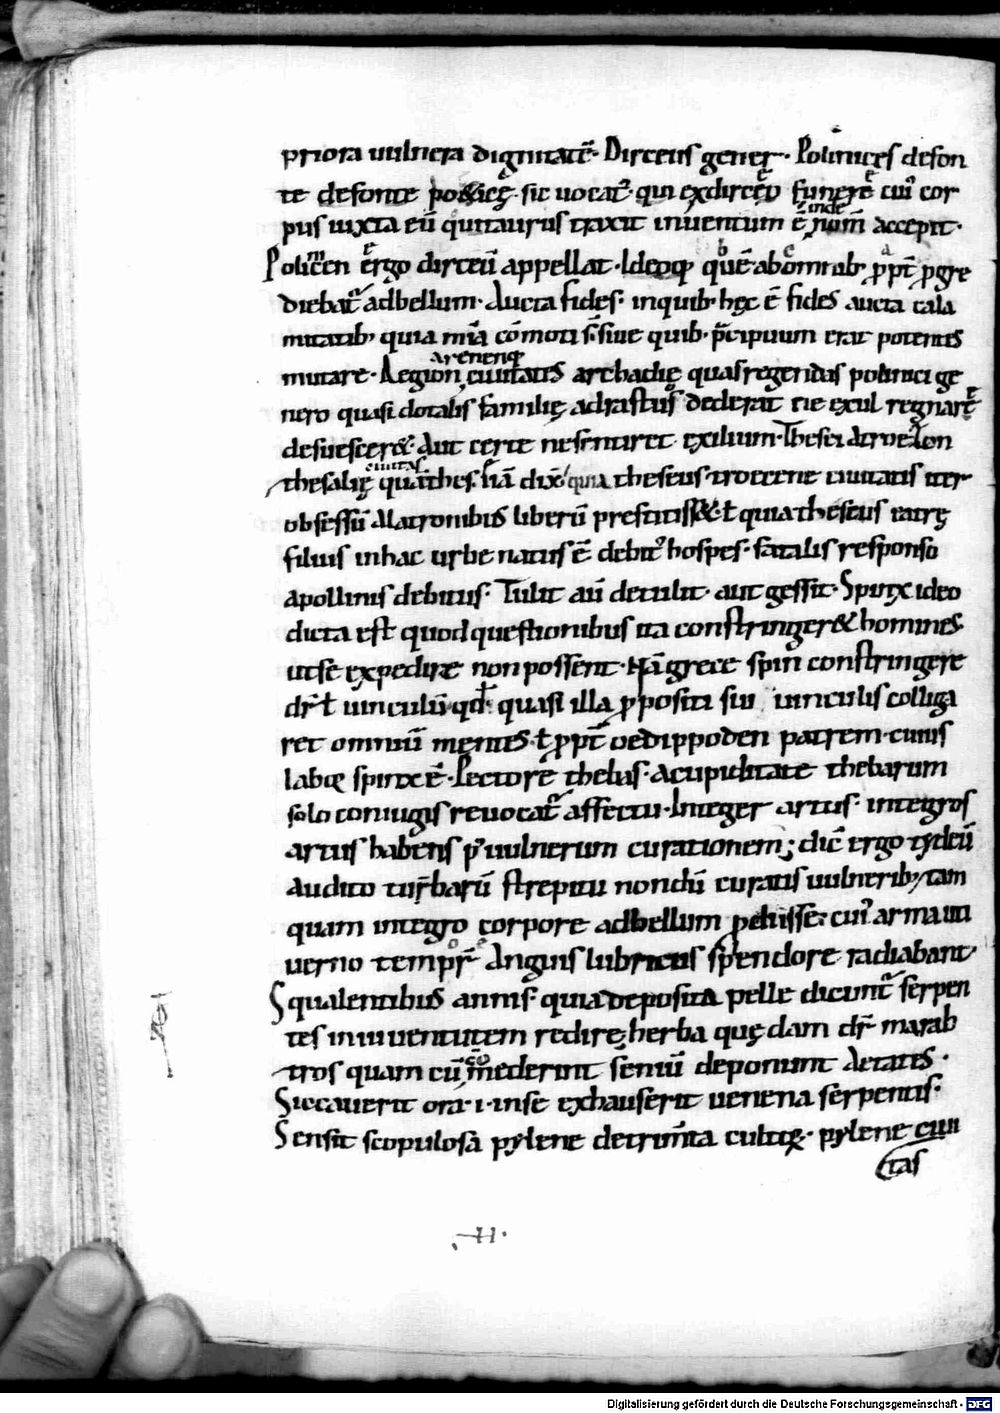 priora uulnera dignitatē· Dirceus gener· Polinices defon
te defonte sic uocat᷑· qui exdirceo funere cui᷑ cor
pus iuxta eū quitaurus traxit inuentum ē inde nom̄ accepit·
Policen ergo dirceū appellat· Ideoq; quē abomnib; ꝓpt̄ ꝓgre
diebat᷑ adbellum· Aucta fides· inquib; hęc ē fides aucta cala
mitatib; quia mīa cōmoti s̄· siue quib; p̄cipuum erat potentes
mutare· arenenq;
Region ciuitates archadię quas regendas polinici ge
nero quasi dotalis familię adrastus dederat ne exul regnare
desuesceret· Aut certe nesentiret exilium· Thesei
ciuitas
thesalię thes· nā dix̄ quia theseus troezene ciuitatis iter
obsessū Alatronibus liberū prestitisset ɫ quia theseus
filius inhac urbe natus ē debit᷑ hospes· fatalis responso
apollinis debitus· Tulit aū detulit· aut gessit· Spinx ideo
dicta est quod questionibus ita constringeret homines
utse expedire non possent· Nā grece spin constringere
dr̄ ɫ uinculū qd̄ quasi illa ꝓpositi sui uinculis colliga
ret omniū mentes· ɫ ꝓpt̄ oedippoden patrem· cuius
labe spinx ē· Lectore thebas· Acupiditate thebarum
solo coniugis reuocat᷑ affectu· Integer artus· integros
artus habens p᷑ uulnerum curationem; dic̄ ergo tydeū
audito turbarū strepitu nondū curatis uulnerib; tam
quam integro corpore adbellum ꝓchisse· cui᷑ arma uti
uerno tempr̄ Anguis lubricus splendore radiabant·
Squalentibus annis· quia deposita pelle dicunt᷑ serpen
tes iniuuentutem redire· herba quę dam dr̄ marab
tros quam cū comederint seniū deponunt Aetatis·
Siccauerit ora· i· inse exhauserit uenena serpentis·
Sensit scopulosā pylene detrimta cultę· pylene ciui
tas
·II·